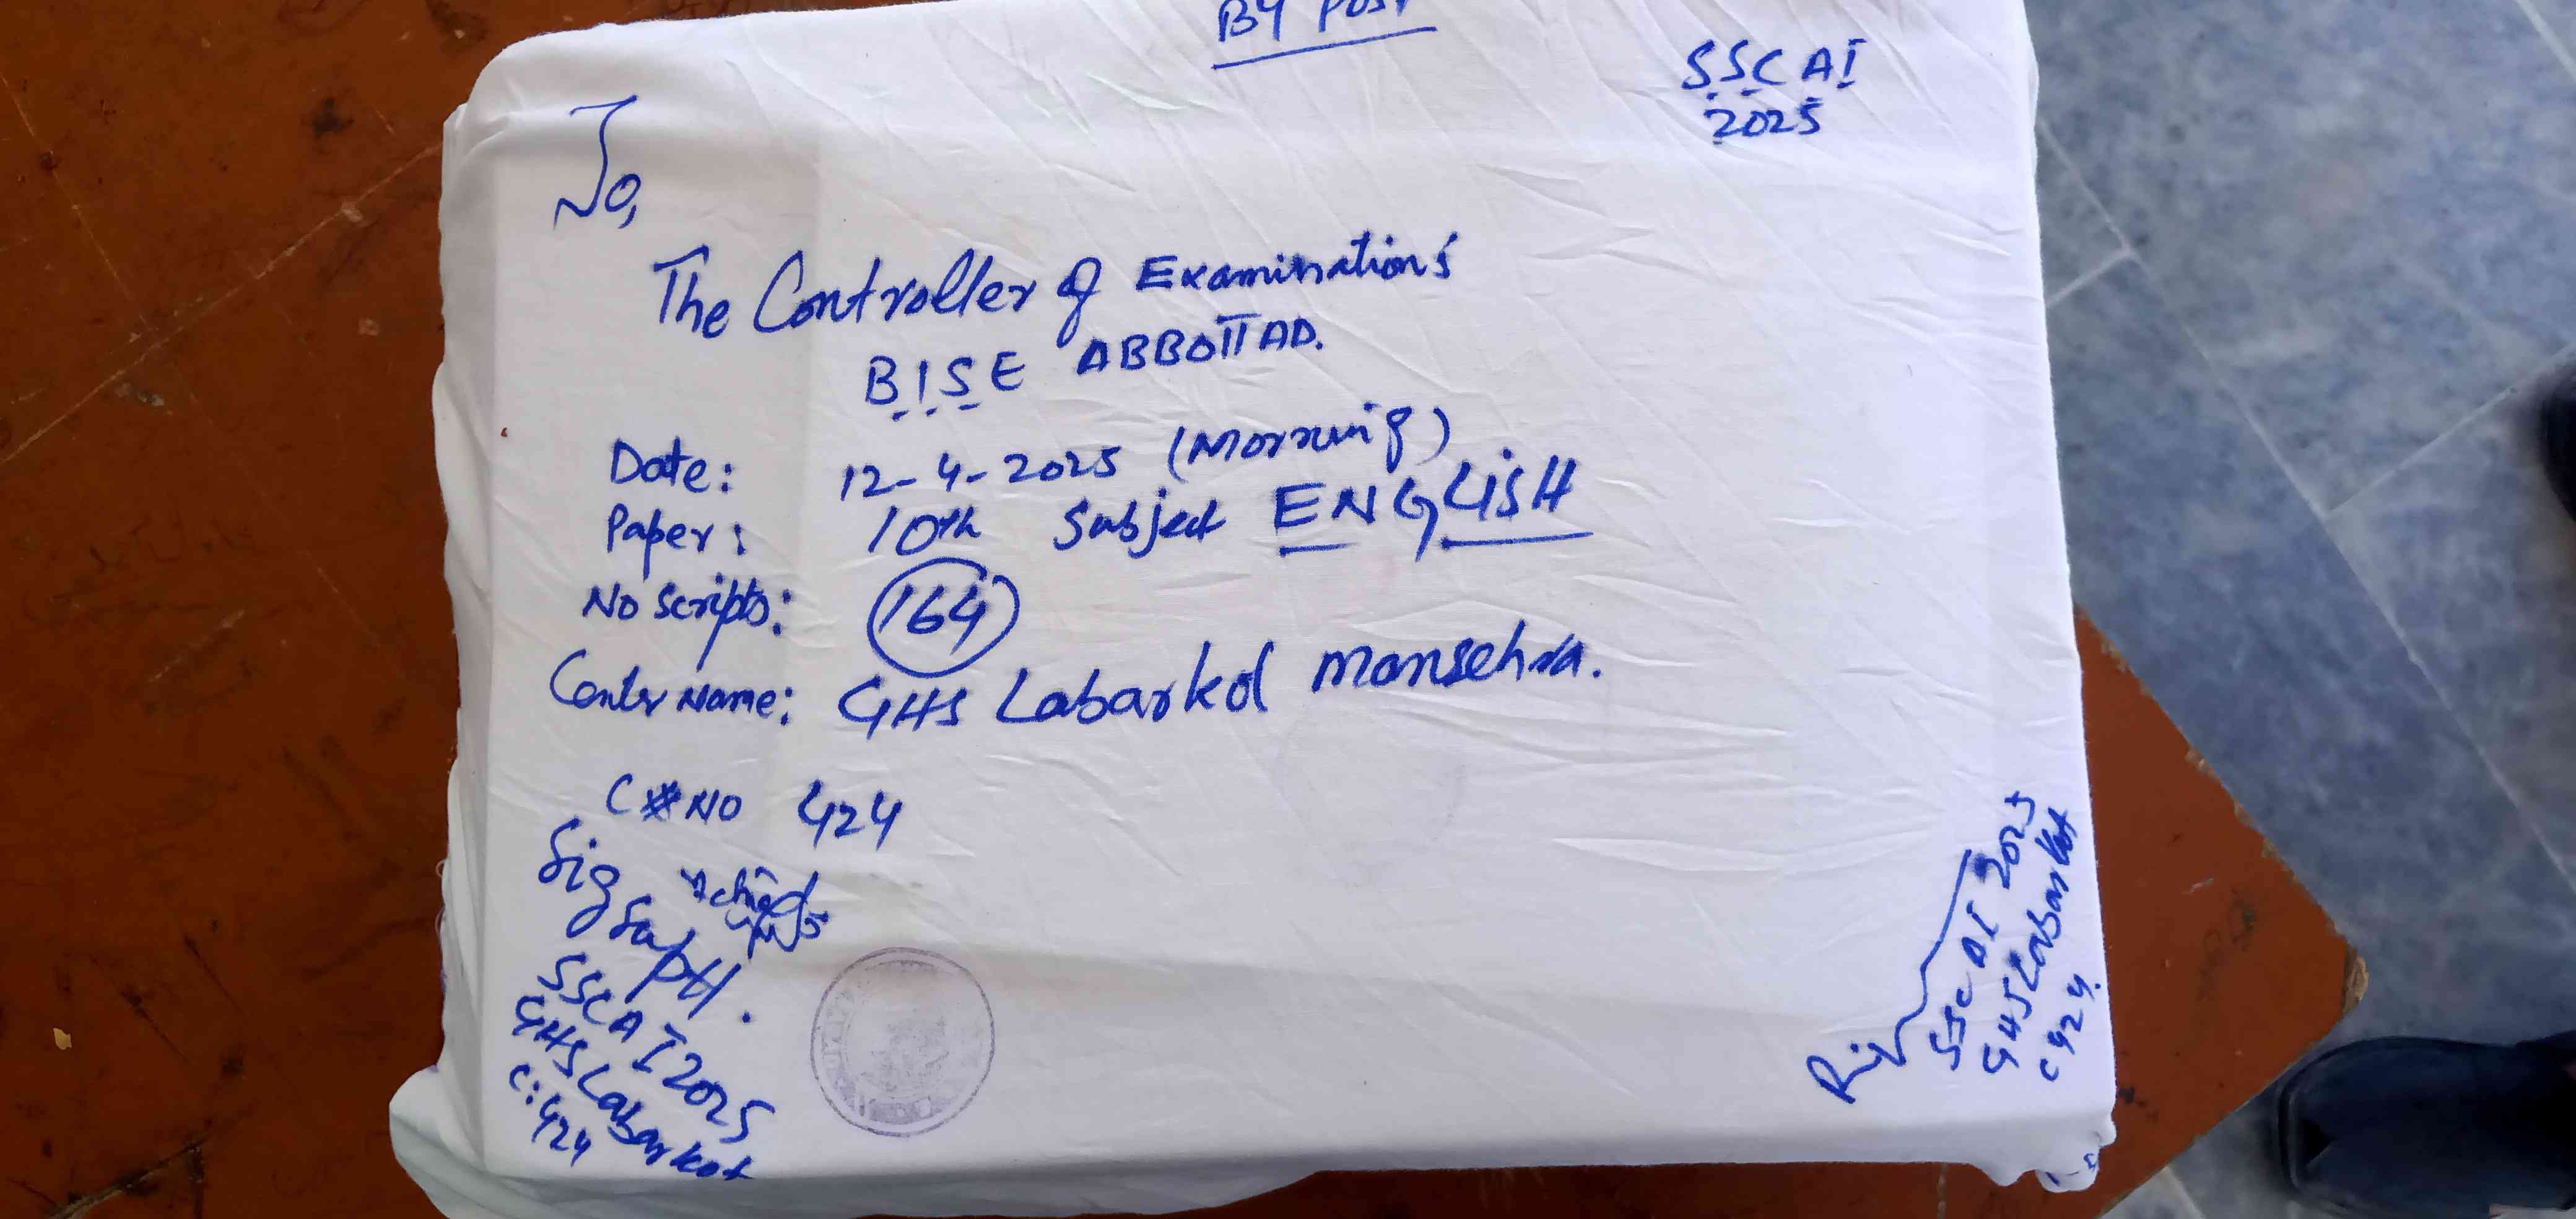 BY POST
SSC AI
2025
To,
The Controller of Examinations
B.I.S.E ABBOTTAD.
Date: 12-4-2025 (Morning)
Paper: 10th Subject ENGLISH
No Scripts: 164
Center Name: GHS Labarkot Mansehra.
C#NO 424
Sig Supt.
SSC A I 2025
GHS Labarkot
C: 424
SSC AI 2025
GHS Labarkot
C 424.